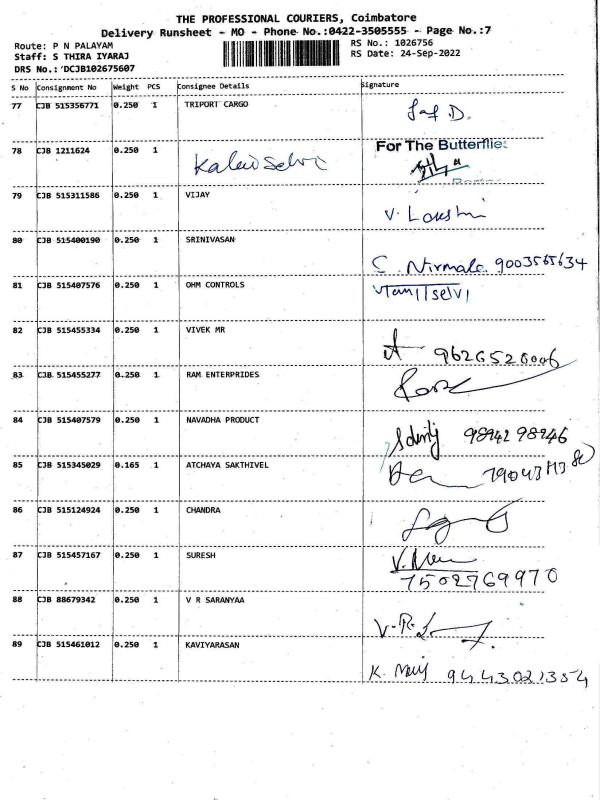 THE PROFESSIONAL COURIERS, Coimbatore
Delivery Runsheet - MO - Phone No.:0422-3505555 - Page No.:7
Route: P N PALAYAM
RS No.: 1026756
Staff: S THIRA IYARAJ
RS Date: 24-Sep-2022
DRS No.: DCJB102675607
S No Consignment No Weight PCS Consignee Details Signature
77 CJB 515356771 0.250 1 TRIPORT CARGO
78 CJB 1211624 0.250 1 Kalai Selvi For The Butterflies
79 CJB 515311586 0.250 1 VIJAY
V. Lakshmi
80 CJB 515400190 0.250 1 SRINIVASAN
S. Nirmala 9003565634
81 CJB 515407576 0.250 1 OHM CONTROLS Tamilselvi
82 CJB 515455334 0.250 1 VIVEK MR
9626526006
83 CJB 515455277 0.250 1 RAM ENTERPRIDES
84 CJB 515407579 0.250 1 NAVADHA PRODUCT
98942 98946
85 CJB 515345029 0.165 1 ATCHAYA SAKTHIVEL
86 CJB 515124924 0.250 1 CHANDRA
87 CJB 515457167 0.250 1 SURESH
7502769970
88 CJB 88679342 0.250 1 V R SARANYAA
89 CJB 515461012 0.250 1 KAVIYARASAN
9443021354